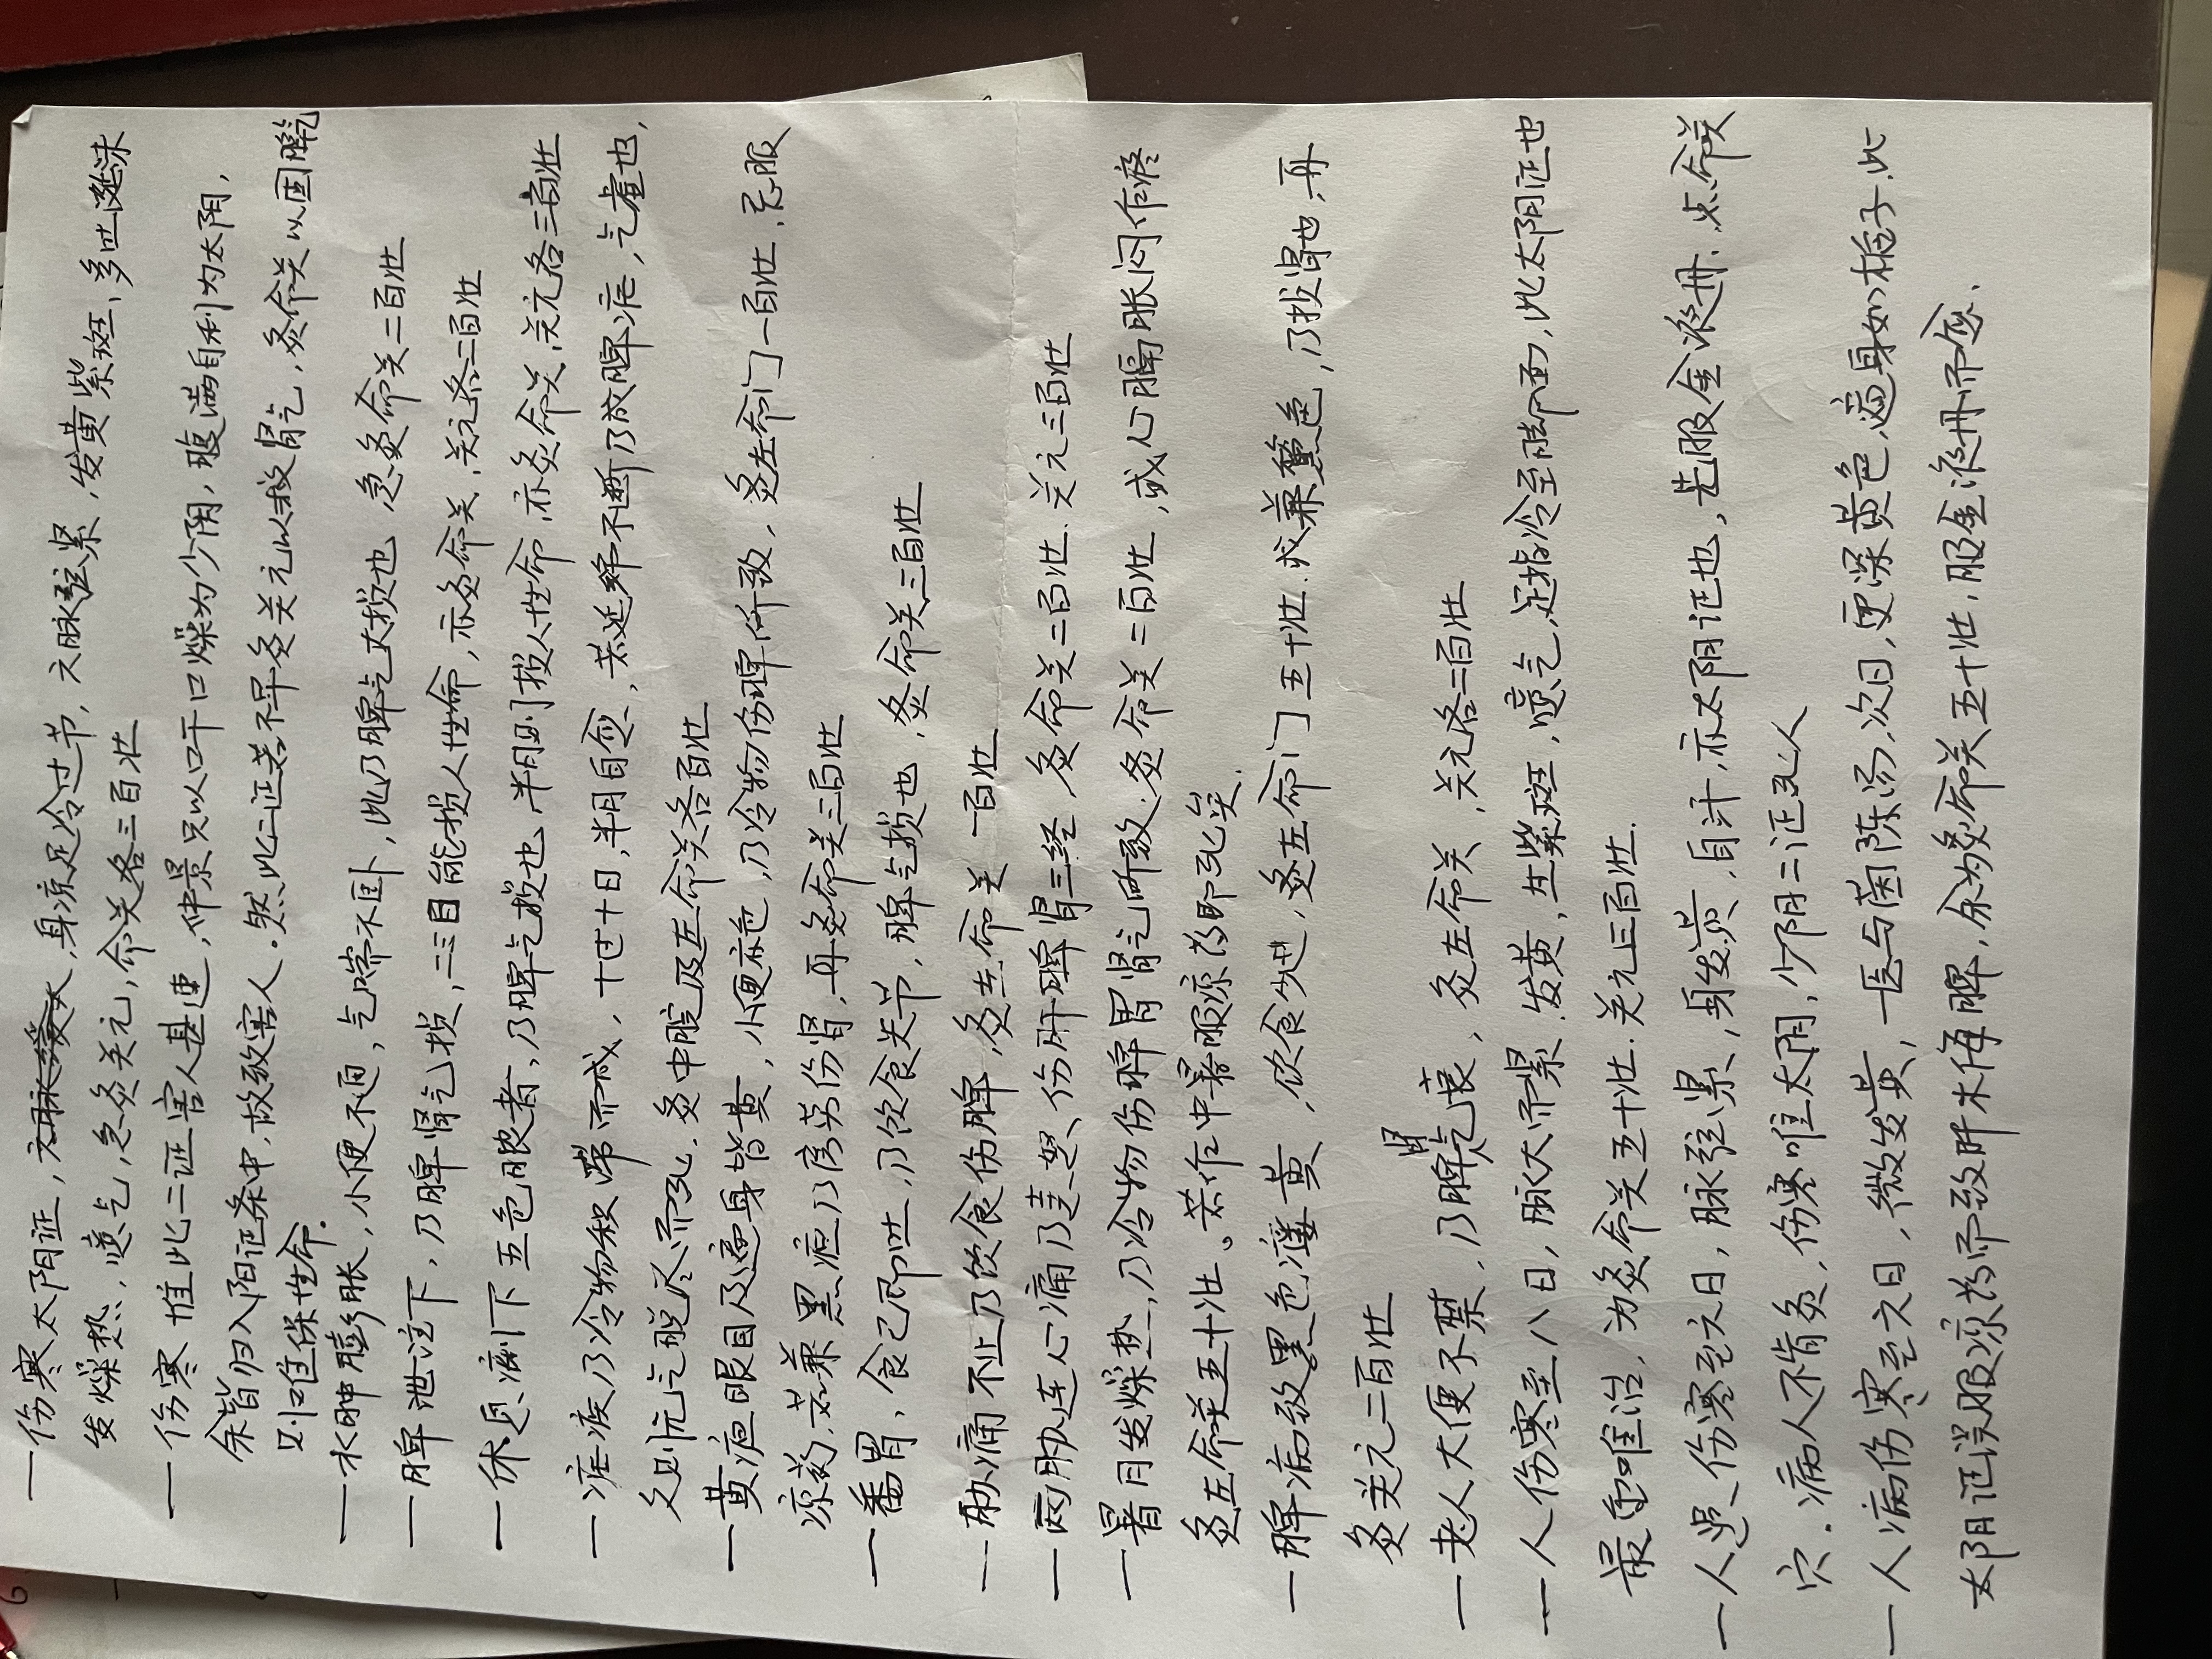 一伤寒太阴证，身凉足冷过节，六脉弦紧，发黄紫斑，多吐涎沫
发燥热，噫气，急灸关元，命关各三百壮
一伤寒惟此二证害人甚速，仲景只以口干口燥为少阴，腹满自利为太阴，
余皆归入阳证条中，故致害人．然此二证若不早灸关元以救肾气，灸命关以固脾气
则难保性命．
一水肿膨胀，小便不通，气喘不卧，此乃脾气大损也，急灸命关二百壮
一脾泄注下，乃脾肾气损，二三日能损人性命，亦灸命关，关元各二百壮
一休息痢下五色脓者，乃脾气损也，半月则损人性命，亦灸命关，关元各三百壮
一疟疾乃冷物积滞而成，十过十日，半月自愈，若延绵不断乃成脾疟，气虚也，
久则元气脱尽而死，灸中脘及左命关各百壮
一黄疸眼目及遍身皆黄，小便赤色，乃冷物伤脾所致，灸左命门一百壮，忌服
凉药，若兼黑疸乃房劳伤肾，再灸命关三百壮
一番胃，食已即吐，乃饮食失节，脾气损也，灸命关三百壮
一胁痛不止乃饮食伤脾，灸左命关一百壮
一两胁连心痛乃恚怒、伤肝脾肾三经，灸命关二百壮．关元三百壮
一暑月发燥热，乃冷物伤脾胃肾气所致．灸命关二百壮，或心膈胀闷作疼
灸左命关五十壮。若作中暑服凉药即死矣．
一脾病致黑色痿黄，饮食少进，灸左命门五十壮．或兼黧色，乃损肾也，再
灸关元二百壮
一老人大便不禁，乃脾肾气衰，灸左命关，关元各二百壮
一人伤寒至八日，脉大而紧．发黄，生紫斑，噫气，足指冷至脚面，此太阴证也
最重难治，为灸命关五十壮．关元三百壮．
一人患伤寒至六日，脉弦紧，身发黄，自汗，亦太阴证也，先服金液丹．点命关
穴．病人不肯灸，伤寒唯太阴，少阴二证死人
一人病伤寒至六日，微发黄，一医与茵陈汤．次日，更深黄色，遍身如栀子．此
太阴证误服凉药而致肝木侮脾，余为灸命关五十壮，服金液丹而愈．